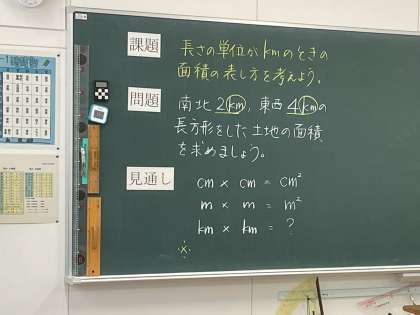 課題
長さの単位がkmのときの
面積の表し方を考えよう。
問題
南北2km、東西4kmの
長方形をした土地の面積
を求めましょう。
見通し
cm × cm = cm²
m × m = m²
km × km = ?